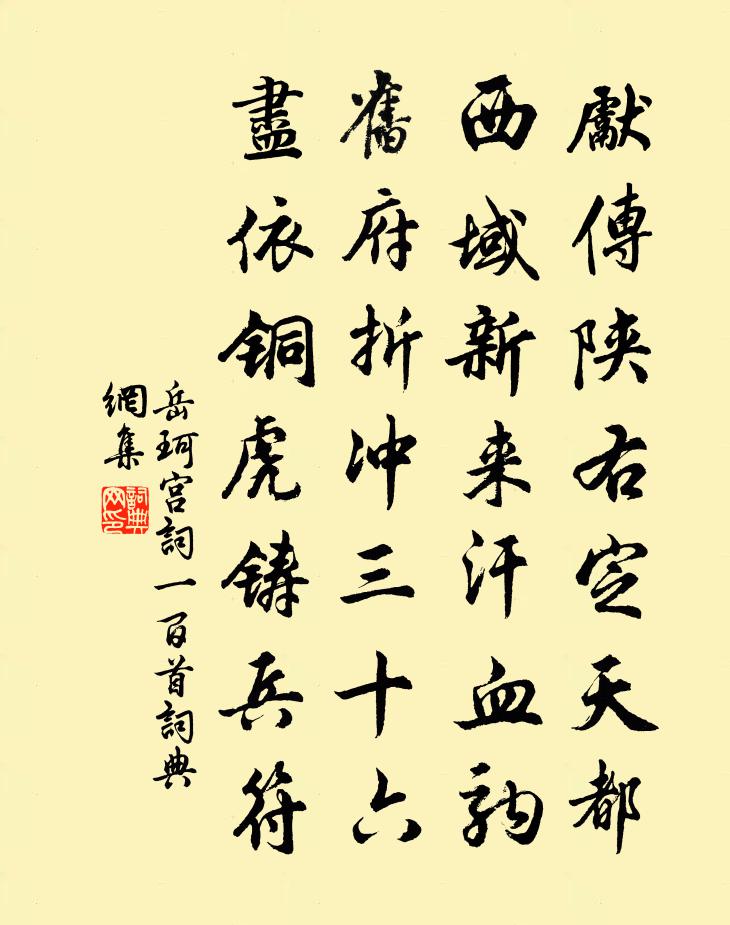 獻傳陝右定天都
西域新来汗血駒
舊府折冲三十六
盡依銅虎铸兵符
岳珂宫詞一百首詞典
網集
詞典
网印